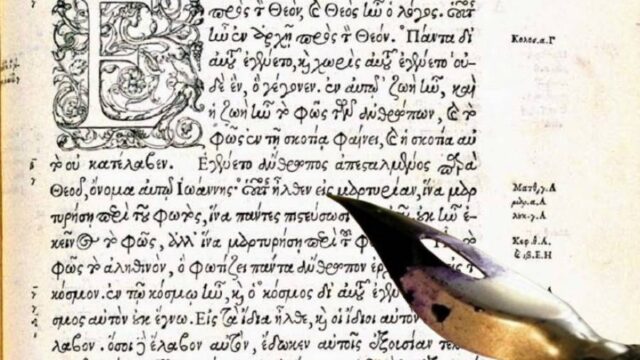 Ε πρὸς τὸν Θεόν, καὶ Θεὸς ἦν ὁ λόγος. οὗτος
ἦν ἐν ἀρχῇ πρὸς τὸν Θεόν. Πάντα δι᾽
αὐτοῦ ἐγένετο, καὶ χωρὶς αὐτοῦ ἐγένετο οὐ-
δὲ ἓν, ὃ γέγονεν. ἐν αὐτῷ ζωὴ ἦν, καὶ
ἡ ζωὴ ἦν τὸ φῶς τῶν ἀνθρώπων, καὶ τὸ
φῶς ἐν τῇ σκοτίᾳ φαίνει, καὶ ἡ σκοτία αὐ-
τὸ οὐ κατέλαβεν. Ἐγένετο ἄνθρωπος ἀπεσταλμένος παρὰ
Θεοῦ, ὄνομα αὐτῷ Ἰωάννης· οὗτος ἦλθεν εἰς μαρτυρίαν, ἵνα μαρ-
τυρήσῃ περὶ τοῦ φωτὸς, ἵνα πάντες πιστεύσωσι οὐκ ἦν ἐ-
κεῖνος τὸ φῶς, ἀλλ᾽ ἵνα μαρτυρήσῃ περὶ τοῦ
φῶς τὸ ἀληθινὸν, ὃ φωτίζει πάντα ἄνθρωπον
κόσμον. ἐν τῷ κόσμῳ ἦν, καὶ ὁ κόσμος δι᾽ αὐτοῦ
σμος αὐτὸν οὐκ ἔγνω. Εἰς τὰ ἴδια ἦλθε, καὶ οἱ ἴδιοι αὐτὸν
λαβον. ὅσοι δὲ ἔλαβον αὐτὸν, ἔδωκεν αὐτοῖς ἐξουσίαν
Κολοσ.α.Γ
Ματθ.γ.Α
μάρ.α.Α
λουκ.γ.Α